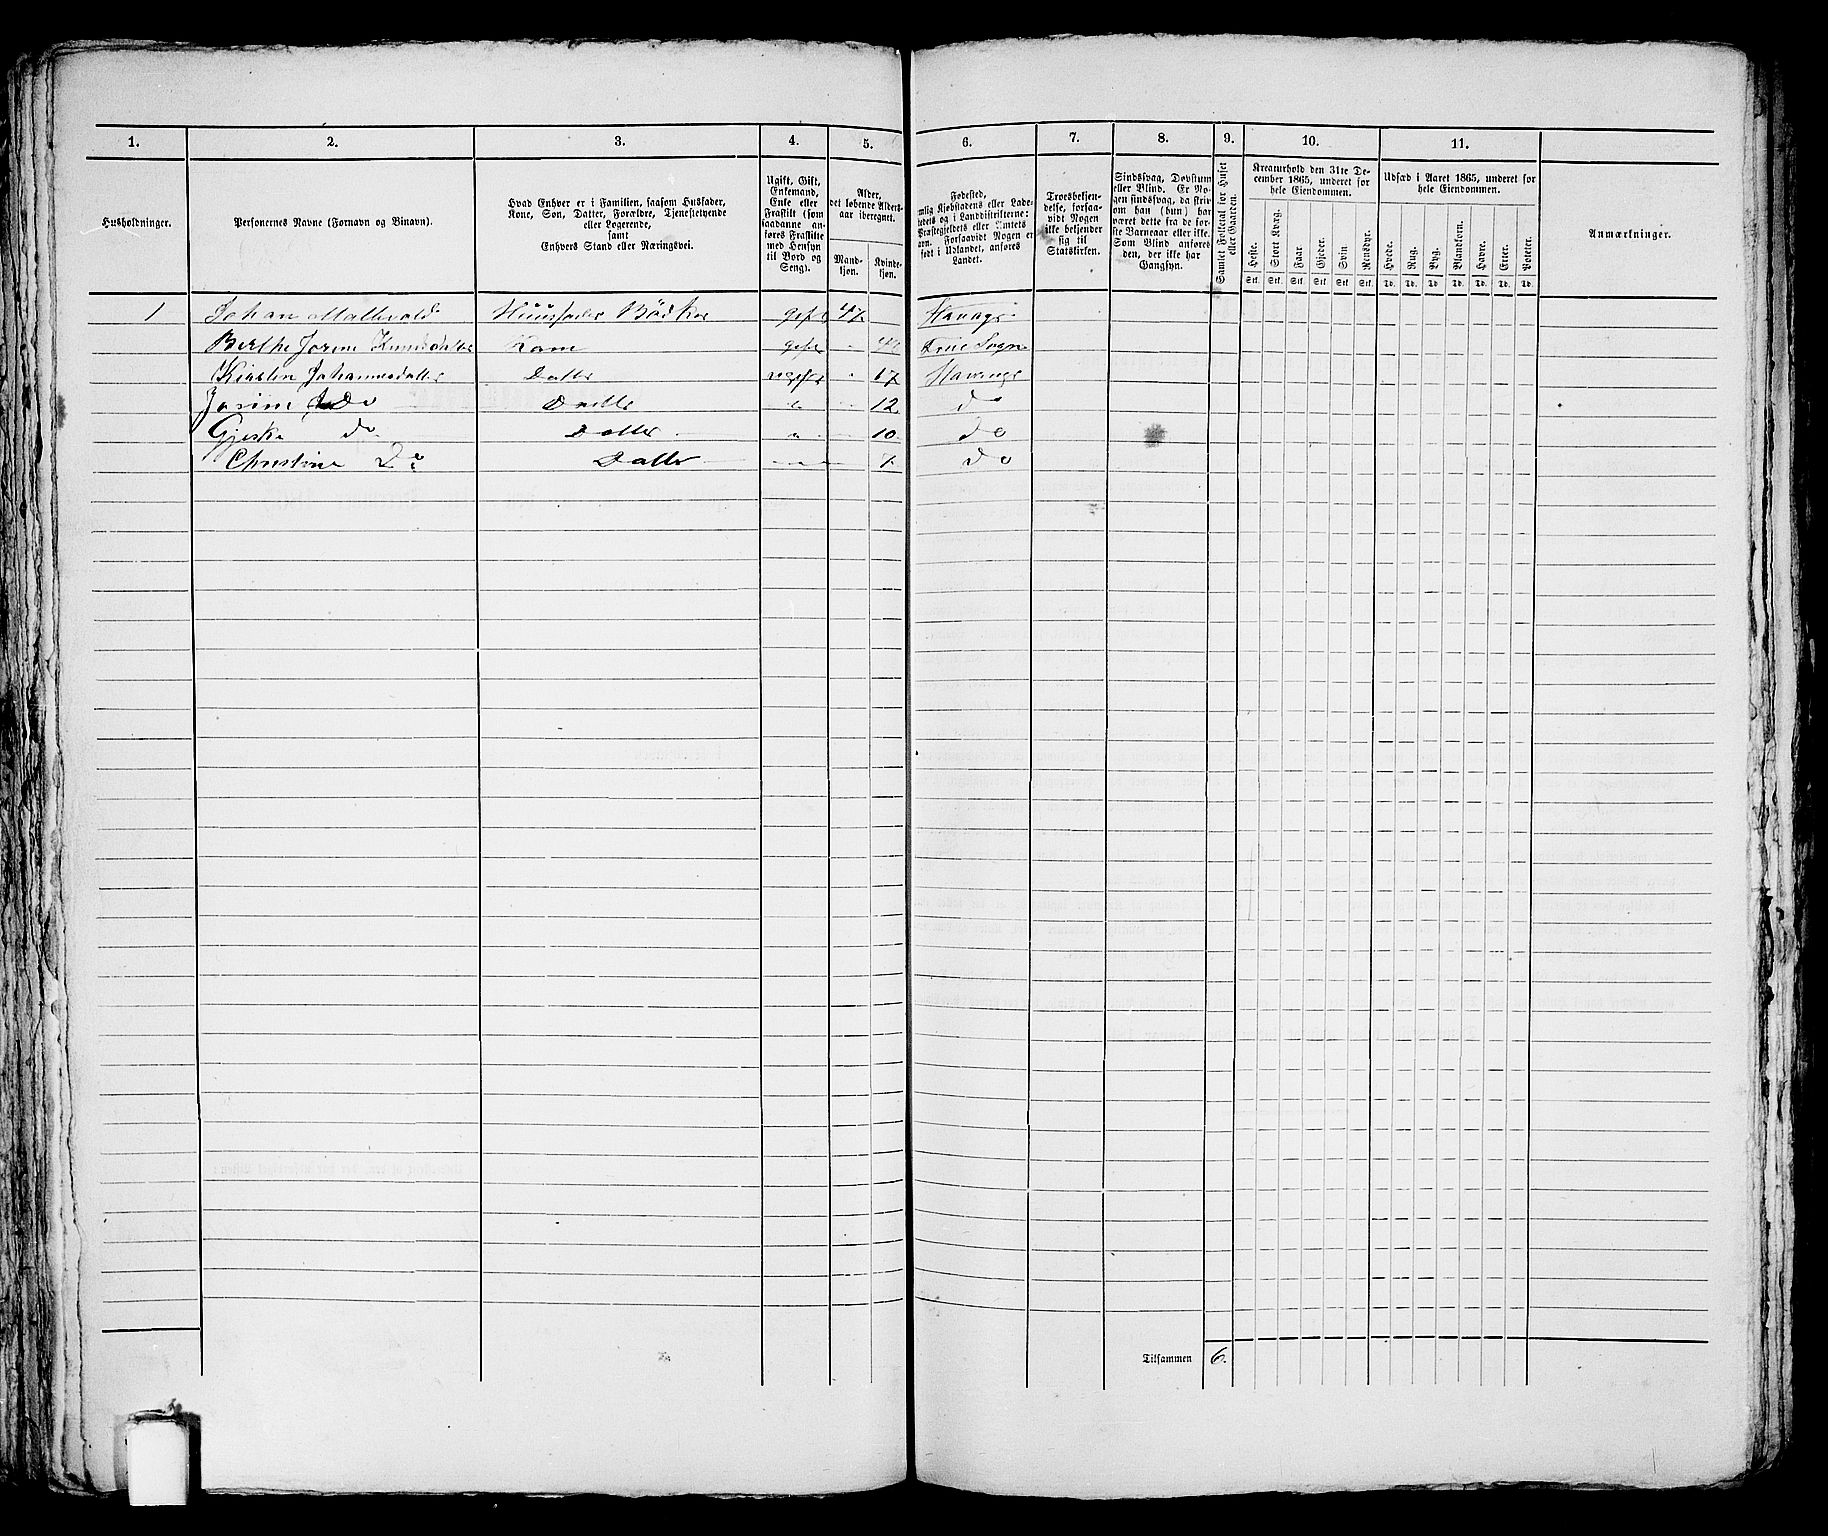 1. 2. 3. 4. 5. 6. 7. 8. 9. 10. 11.
Husholdninger.
Personernes Navne (Fornavn og Binavn).
Hvad Enhver er i Familien, saasom Husfader,
Kone, Søn, Datter, Forældre, Tjenestetyende
eller Logerende,
samt
Enhvers Stand eller Næringsvei.
Ugift, Gift,
Enkemand,
Enke eller
Fraskilt (som
saadanne an-
føres Fraskilte
med Hensyn
til Bord og
Seng).
Alder,
det løbende Alders-
aar iberegnet.
Mand-
kjøn.
Kvinde-
kjøn.
Fødested,
Kjøbstadens eller Lade-
stedets og i Landdistrikterne:
Præstegjeldets eller
Forsaavidt Nogen er
født i Udlandet, anføres
Landet.
Troesbekjen-
delse, forsaa-
vidt Nogen
ikke bekjender
sig til
Statskirken.
Sindssvag, Døvstum
eller Blind. Er No-
gen sindssvag, da skriv
om han (hun) har
været dette fra de før-
ste Barneaar eller ikke.
Som Blind anføres
den, der ikke har
Gangsyn.
Samlet Folketal for Huset
eller Gaarden.
Kreaturhold den 31te De-
cember 1865, underet for
hele Eiendommen.
Heste. Stort Kvæg. Faar. Gjeder. Svin Rensdyr.
Stk. Stk. Stk. Stk. Stk. Stk.
Udsæd i Aaret 1865, underet for
hele Eiendommen.
Hvede. Rug. Byg. Blandkorn. Havre. Erter. Poteter.
Td. Td. Td. Td. Td. Td. Td.
Anmærkninger.
1 Johan Huusfader Bödker gift 47
Berthe Jorine Kone gift Sogn
Kirsten Johannesdatter Datter 17
Josine Do Datter 12 do
Gjeske do Datter 10 do
Christine Do Datter 7 do
Tilsammen 6.